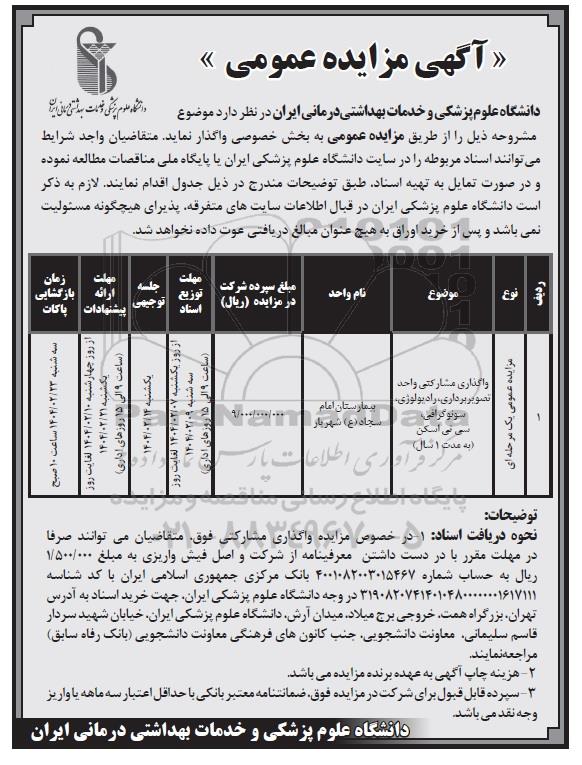 « آگهی مزایده عمومی »
دانشگاه علوم پزشکی و خدمات بهداشتی درمانی ایران
دانشگاه علوم پزشکی و خدمات بهداشتی درمانی ایران در نظر دارد موضوع
مشروحه ذیل را از طریق مزایده عمومی به بخش خصوصی واگذار نماید. متقاضیان واجد شرایط
می‌توانند اسناد مربوطه را در سایت دانشگاه علوم پزشکی ایران یا پایگاه ملی مناقصات مطالعه نموده
و در صورت تمایل به تهیه اسناد، طبق توضیحات مندرج در ذیل جدول اقدام نمایند. لازم به ذکر
است دانشگاه علوم پزشکی ایران در قبال اطلاعات سایت های متفرقه، پذیرای هیچگونه مسئولیت
نمی باشد و پس از خرید اوراق به هیچ عنوان مبالغ دریافتی عوت داده نخواهد شد.
ردیف
نوع
موضوع
نام واحد
مبلغ سپرده شرکت
در مزایده (ریال)
مهلت
توزیع
اسناد
جلسه
توجیهی
مهلت
ارائه
پیشنهادات
زمان
بازگشایی
پاکات
۱
مزایده عمومی یک مرحله ای
واگذاری مشارکتی واحد
تصویربرداری، رادیولوژی،
سونوگرافی،
سی تی اسکن
(به مدت ۱ سال)
بیمارستان امام
سجاد (ع) شهریار
۹/۰۰۰/۰۰۰/۰۰۰
از روز یکشنبه ۱۴۰۴/۰۲/۰۷ لغایت روز
سه شنبه ۱۴۰۴/۰۲/۰۹
(ساعت ۹ الی ۱۵ روزهای اداری)
یکشنبه ۱۴۰۴/۰۲/۱۴
از روز چهارشنبه ۱۴۰۴/۰۲/۱۰ لغایت روز
یکشنبه ۱۴۰۴/۰۲/۲۱
(ساعت ۹ الی ۱۵ روزهای اداری)
سه شنبه ۱۴۰۴/۰۲/۲۳ ساعت ۱۰ صبح
توضیحات:
نحوه دریافت اسناد: ۱-در خصوص مزایده واگذاری مشارکتی فوق، متقاضیان می توانند صرفا
در مهلت مقرر با در دست داشتن معرفینامه از شرکت و اصل فیش واریزی به مبلغ ۱/۵۰۰/۰۰۰
ریال به حساب شماره ۴۰۰۱۰۸۲۰۰۳۰۱۵۴۶۷ بانک مرکزی جمهوری اسلامی ایران با کد شناسه
۳۱۹۰۸۲۰۷۴۱۴۰۱۰۴۸۰۰۰۰۰۰۰۱۶۱۷۱۱۱ در وجه دانشگاه علوم پزشکی ایران، جهت خرید اسناد به آدرس
تهران، بزرگراه همت، خروجی برج میلاد، میدان آرش، دانشگاه علوم پزشکی ایران، خیابان شهید سردار
قاسم سلیمانی، معاونت دانشجویی، جنب کانون های فرهنگی معاونت دانشجویی (بانک رفاه سابق)
مراجعه‌نمایند.
۲-هزینه چاپ آگهی به عهده برنده مزایده می باشد.
۳-سپرده قابل قبول برای شرکت در مزایده فوق، ضمانتنامه معتبر بانکی با حداقل اعتبار سه ماهه یا واریز
وجه نقد می باشد.
دانشگاه علوم پزشکی و خدمات بهداشتی درمانی ایران
ParsNamadData
مرکز فرآوری اطلاعات پارس نماد داده
پایگاه اطلاع رسانی مناقصه و مزایده
۰۲۱-۸۸۳۴۹۶۷۰-۵